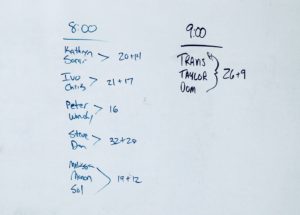 8:00
Kathryn
20+14
Ivo
Chris
21+17
Peter
Wendy
16
Steve
Dan
32+20
Melissa
Sol
19+12
9:00
TRANS
TAYLOR
Dom
26+9